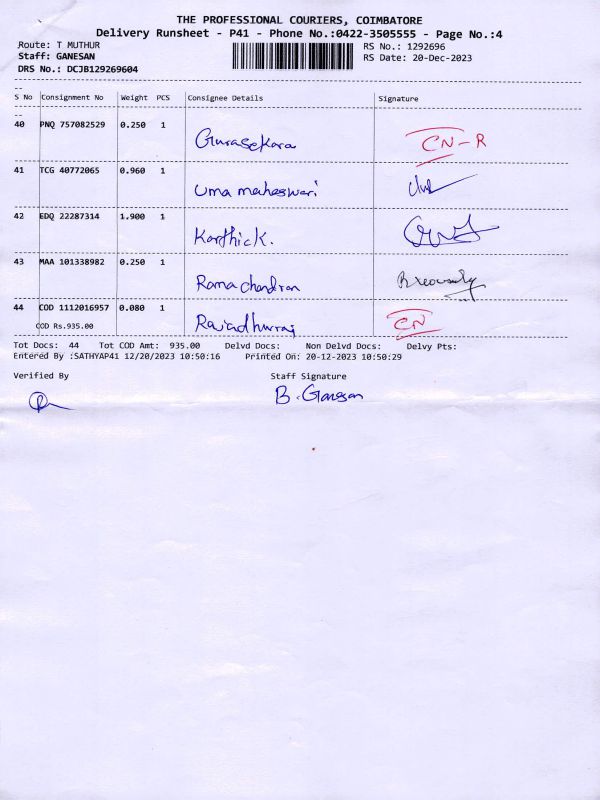 THE PROFESSIONAL COURIERS, COIMBATORE
Delivery Runsheet - P41 - Phone No.:0422-3505555 - Page No.:4
Route: T MUTHUR
RS No.: 1292696
Staff: GANESAN
RS Date: 20-Dec-2023
DRS No.: DCJB129269604
S No Consignment No Weight PCS Consignee Details Signature
40 PNQ 757082529 0.250 1 Gunasekara CN-R
41 TCG 40772065 0.960 1 Uma maheswari
42 EDQ 22287314 1.900 1 Karthick.
43 MAA 101338982 0.250 1 Rama chandran
44 COD 1112016957 0.080 1 CN
COD Rs.935.00
Tot Docs: 44 Tot COD Amt: 935.00 Delvd Docs: Non Delvd Docs: Delvy Pts:
Entered By :SATHYAP41 12/20/2023 10:50:16 Printed On: 20-12-2023 10:50:29
Verified By Staff Signature
B. Ganesan